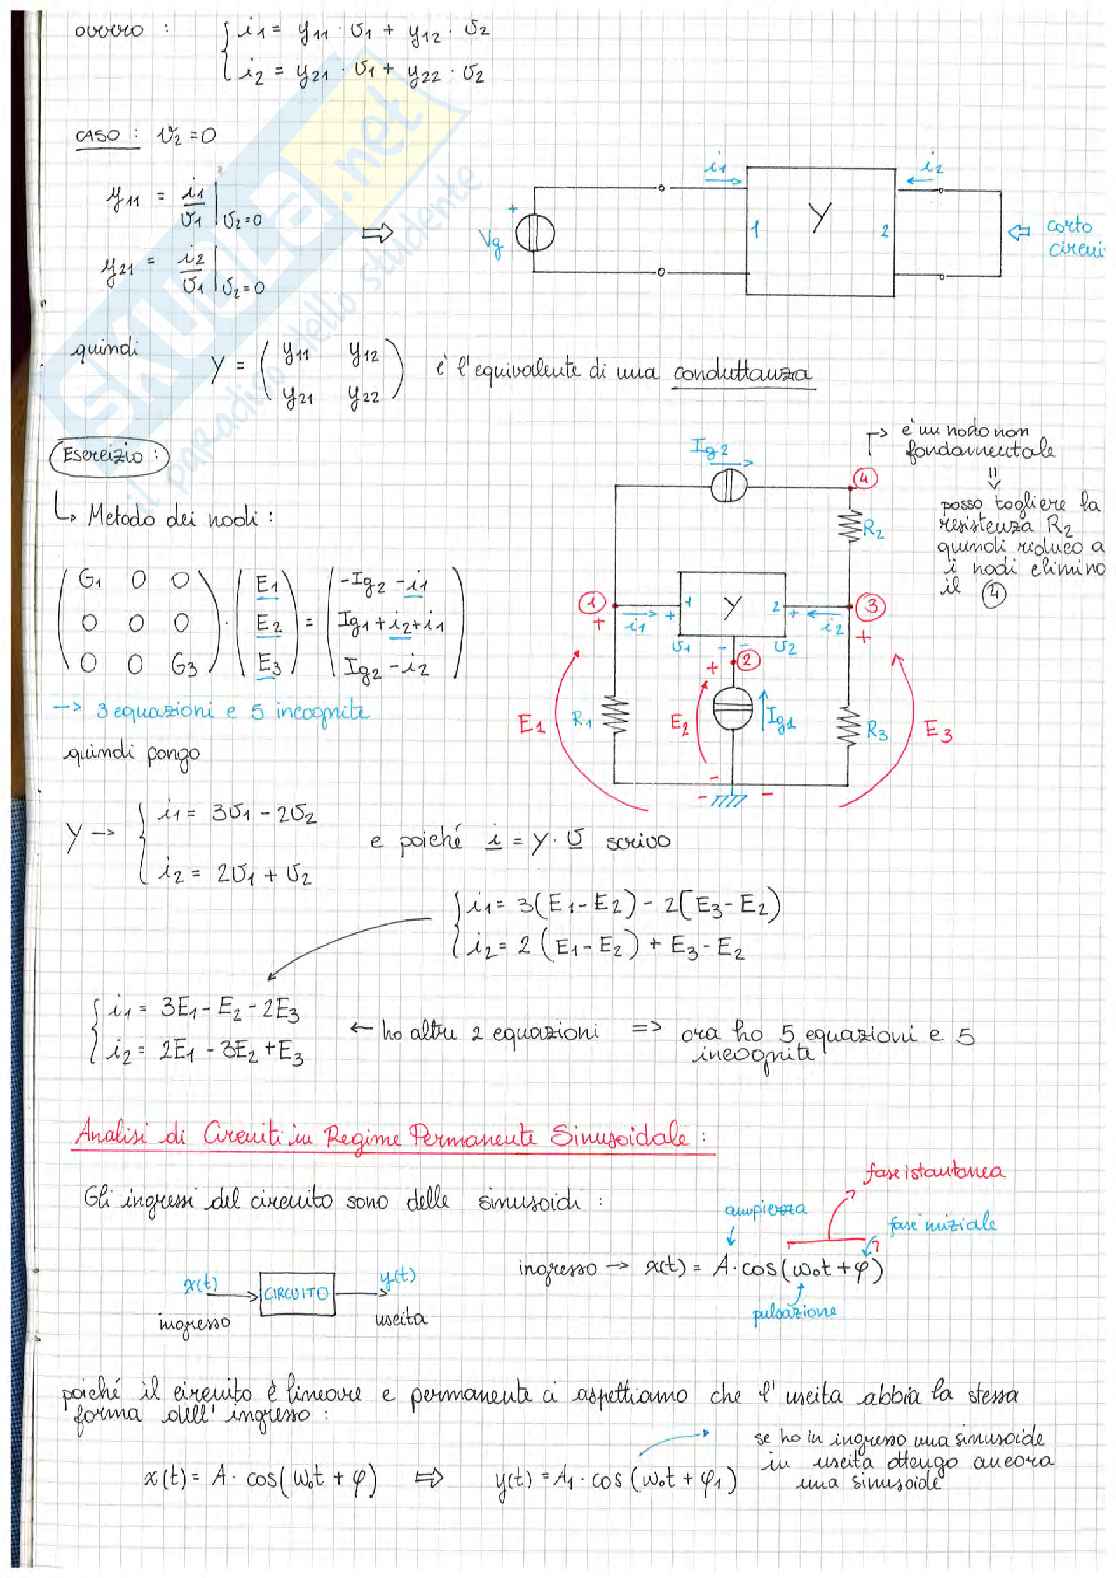 ovvero : { i1 = y11 · v1 + y12 · v2
i2 = y21 · v1 + y22 · v2
CASO : v2 = 0
y11 = i1 / v1 | v2=0
y21 = i2 / v1 | v2=0
⇒
Vg
+
i1
i2
Y
1
2
⇐ corto
circui
quindi Y = ( y11 y12
y21 y22 ) è l'equivalente di una conduttanza
SKUOLA.net
il paradiso dello studente
Esercizio :
↳ Metodo dei nodi :
( G1 0 0 ) ( E1 ) ( -Ig2 - i1 )
( 0 0 0 ) · ( E2 ) = ( Ig1 + i2 + i1 )
( 0 0 G3 ) ( E3 ) ( Ig2 - i2 )
→ 3 equazioni e 5 incognite
quindi pongo
Ig2
→ è un nodo non
fondamentale
⇓
posso togliere la
resistenza R2
quindi riduco a
i nodi elimino
il 4
4
R2
1
+
i1
+ 1 Y 2 +
i2
3
+
v1 - - v2
+ 2
E1
R1
E2
Ig1
R3
E3
- - -
Y → { i1 = 3v1 - 2v2
i2 = 2v1 + v2
e poiché i = Y · v scrivo
{ i1 = 3(E1 - E2) - 2(E3 - E2)
i2 = 2(E1 - E2) + E3 - E2
{ i1 = 3E1 - E2 - 2E3
i2 = 2E1 - 3E2 + E3
← ho altre 2 equazioni => ora ho 5 equazioni e 5
incognite
Analisi di Circuiti in Regime Permanente Sinusoidale :
Gli ingressi del circuito sono delle sinusoidi :
fase istantanea
ampiezza
fase iniziale
ingresso → x(t) = A · cos(ω0t + φ)
pulsazione
x(t)
CIRCUITO
y(t)
ingresso
uscita
poiché il circuito è lineare e permanente ci aspettiamo che l'uscita abbia la stessa
forma dell'ingresso :
x(t) = A · cos(ω0t + φ) ⇒ y(t) = A1 · cos(ω0t + φ1)
se ho in ingresso una sinusoide
in uscita ottengo ancora
una sinusoide